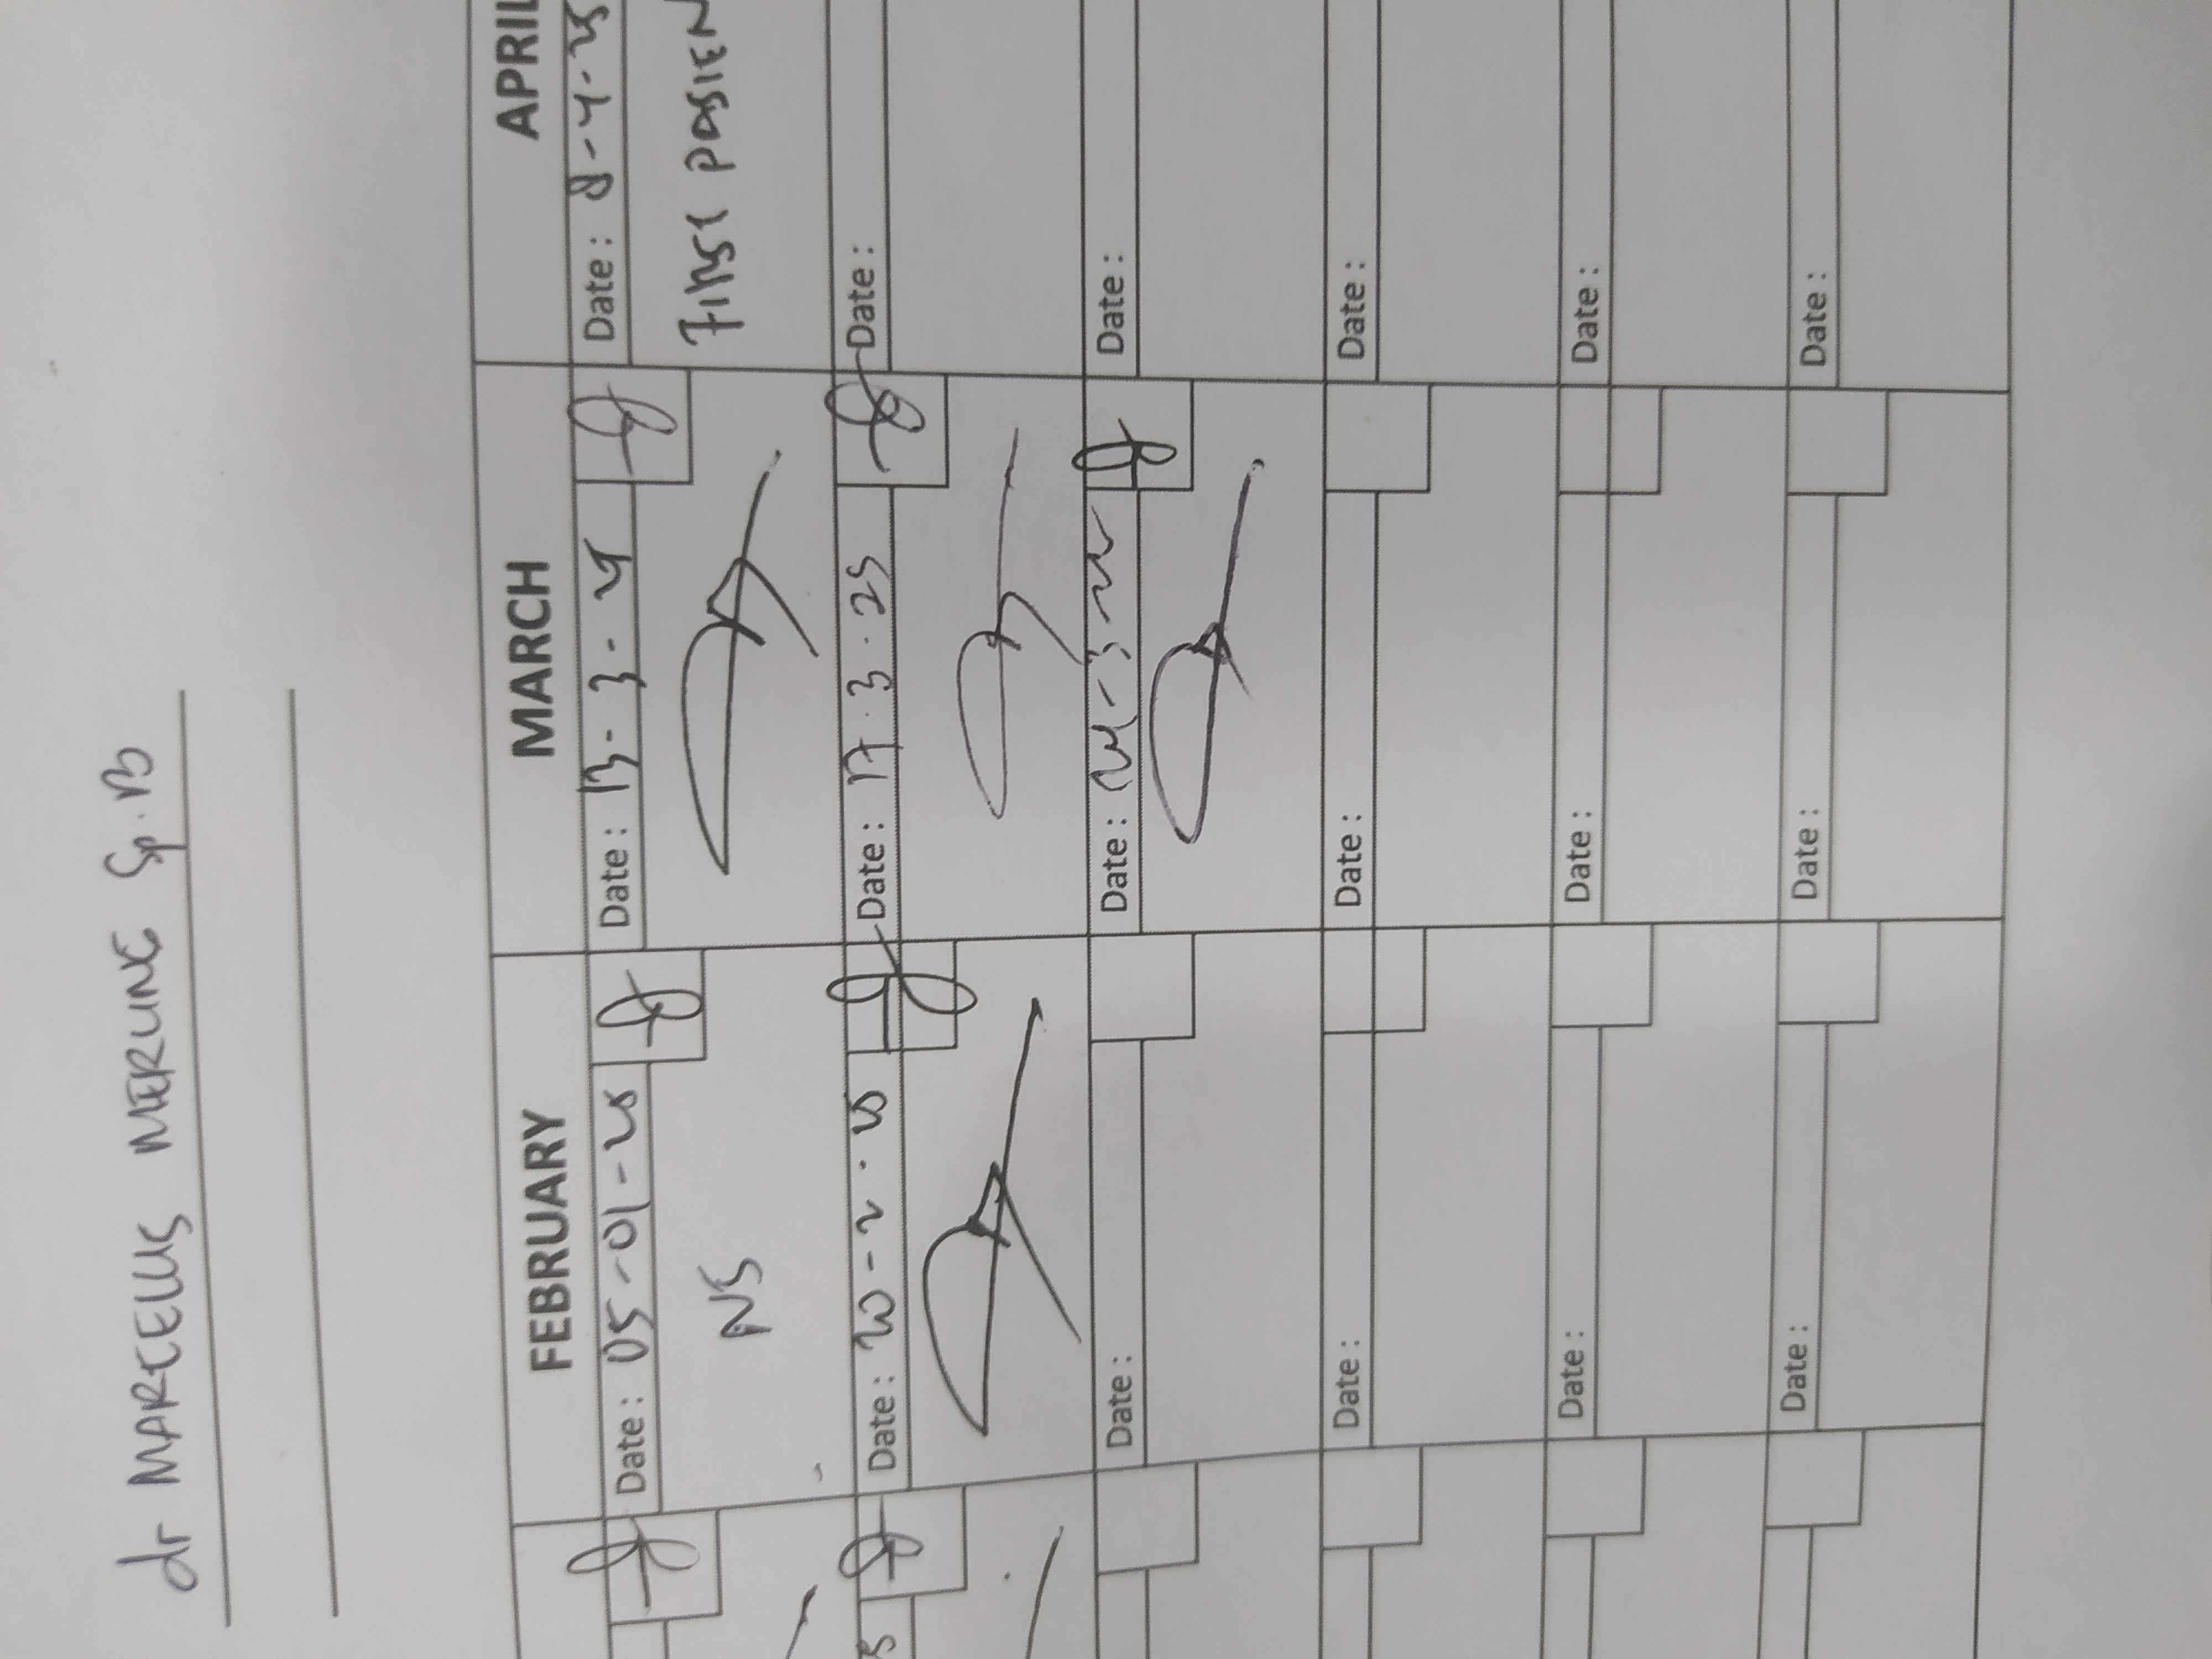 dr MARCELLUS MERUNG Sp.B
FEBRUARY MARCH APRIL
Date : 05-01-25 Date : 13-3-25 Date : 8-4-25
NS FIRST PASIEN
Date : 20-2-25 Date : 17.3.25 Date :
Date : Date : Date :
Date : Date : Date :
Date : Date : Date :
Date : Date : Date :